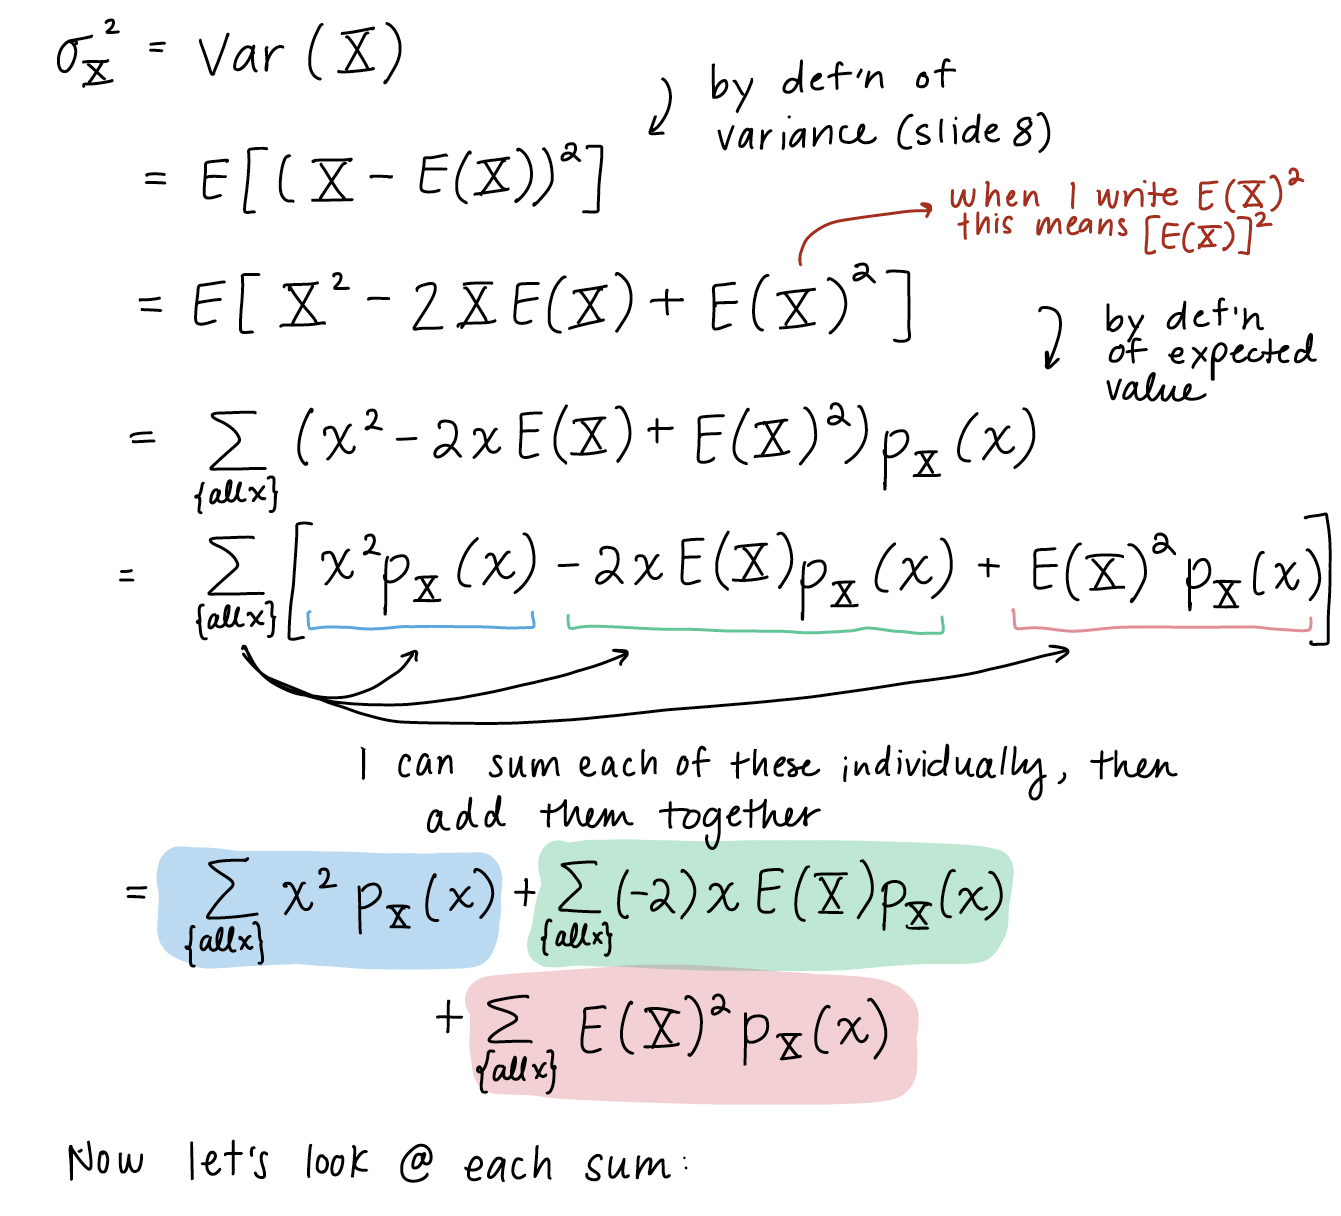 σ_X² = Var(X)
by def'n of
variance (slide 8)
= E[(X − E(X))²]
when I write E(X)²
this means [E(X)]²
= E[X² − 2XE(X) + E(X)²]
by def'n
of expected
value
= Σ_{all x} (x² − 2xE(X) + E(X)²) p_X(x)
= Σ_{all x} [x² p_X(x) − 2xE(X) p_X(x) + E(X)² p_X(x)]
I can sum each of these individually, then
add them together
= Σ_{all x} x² p_X(x) + Σ_{all x} (−2)x E(X) p_X(x)
+ Σ_{all x} E(X)² p_X(x)
Now let's look @ each sum: